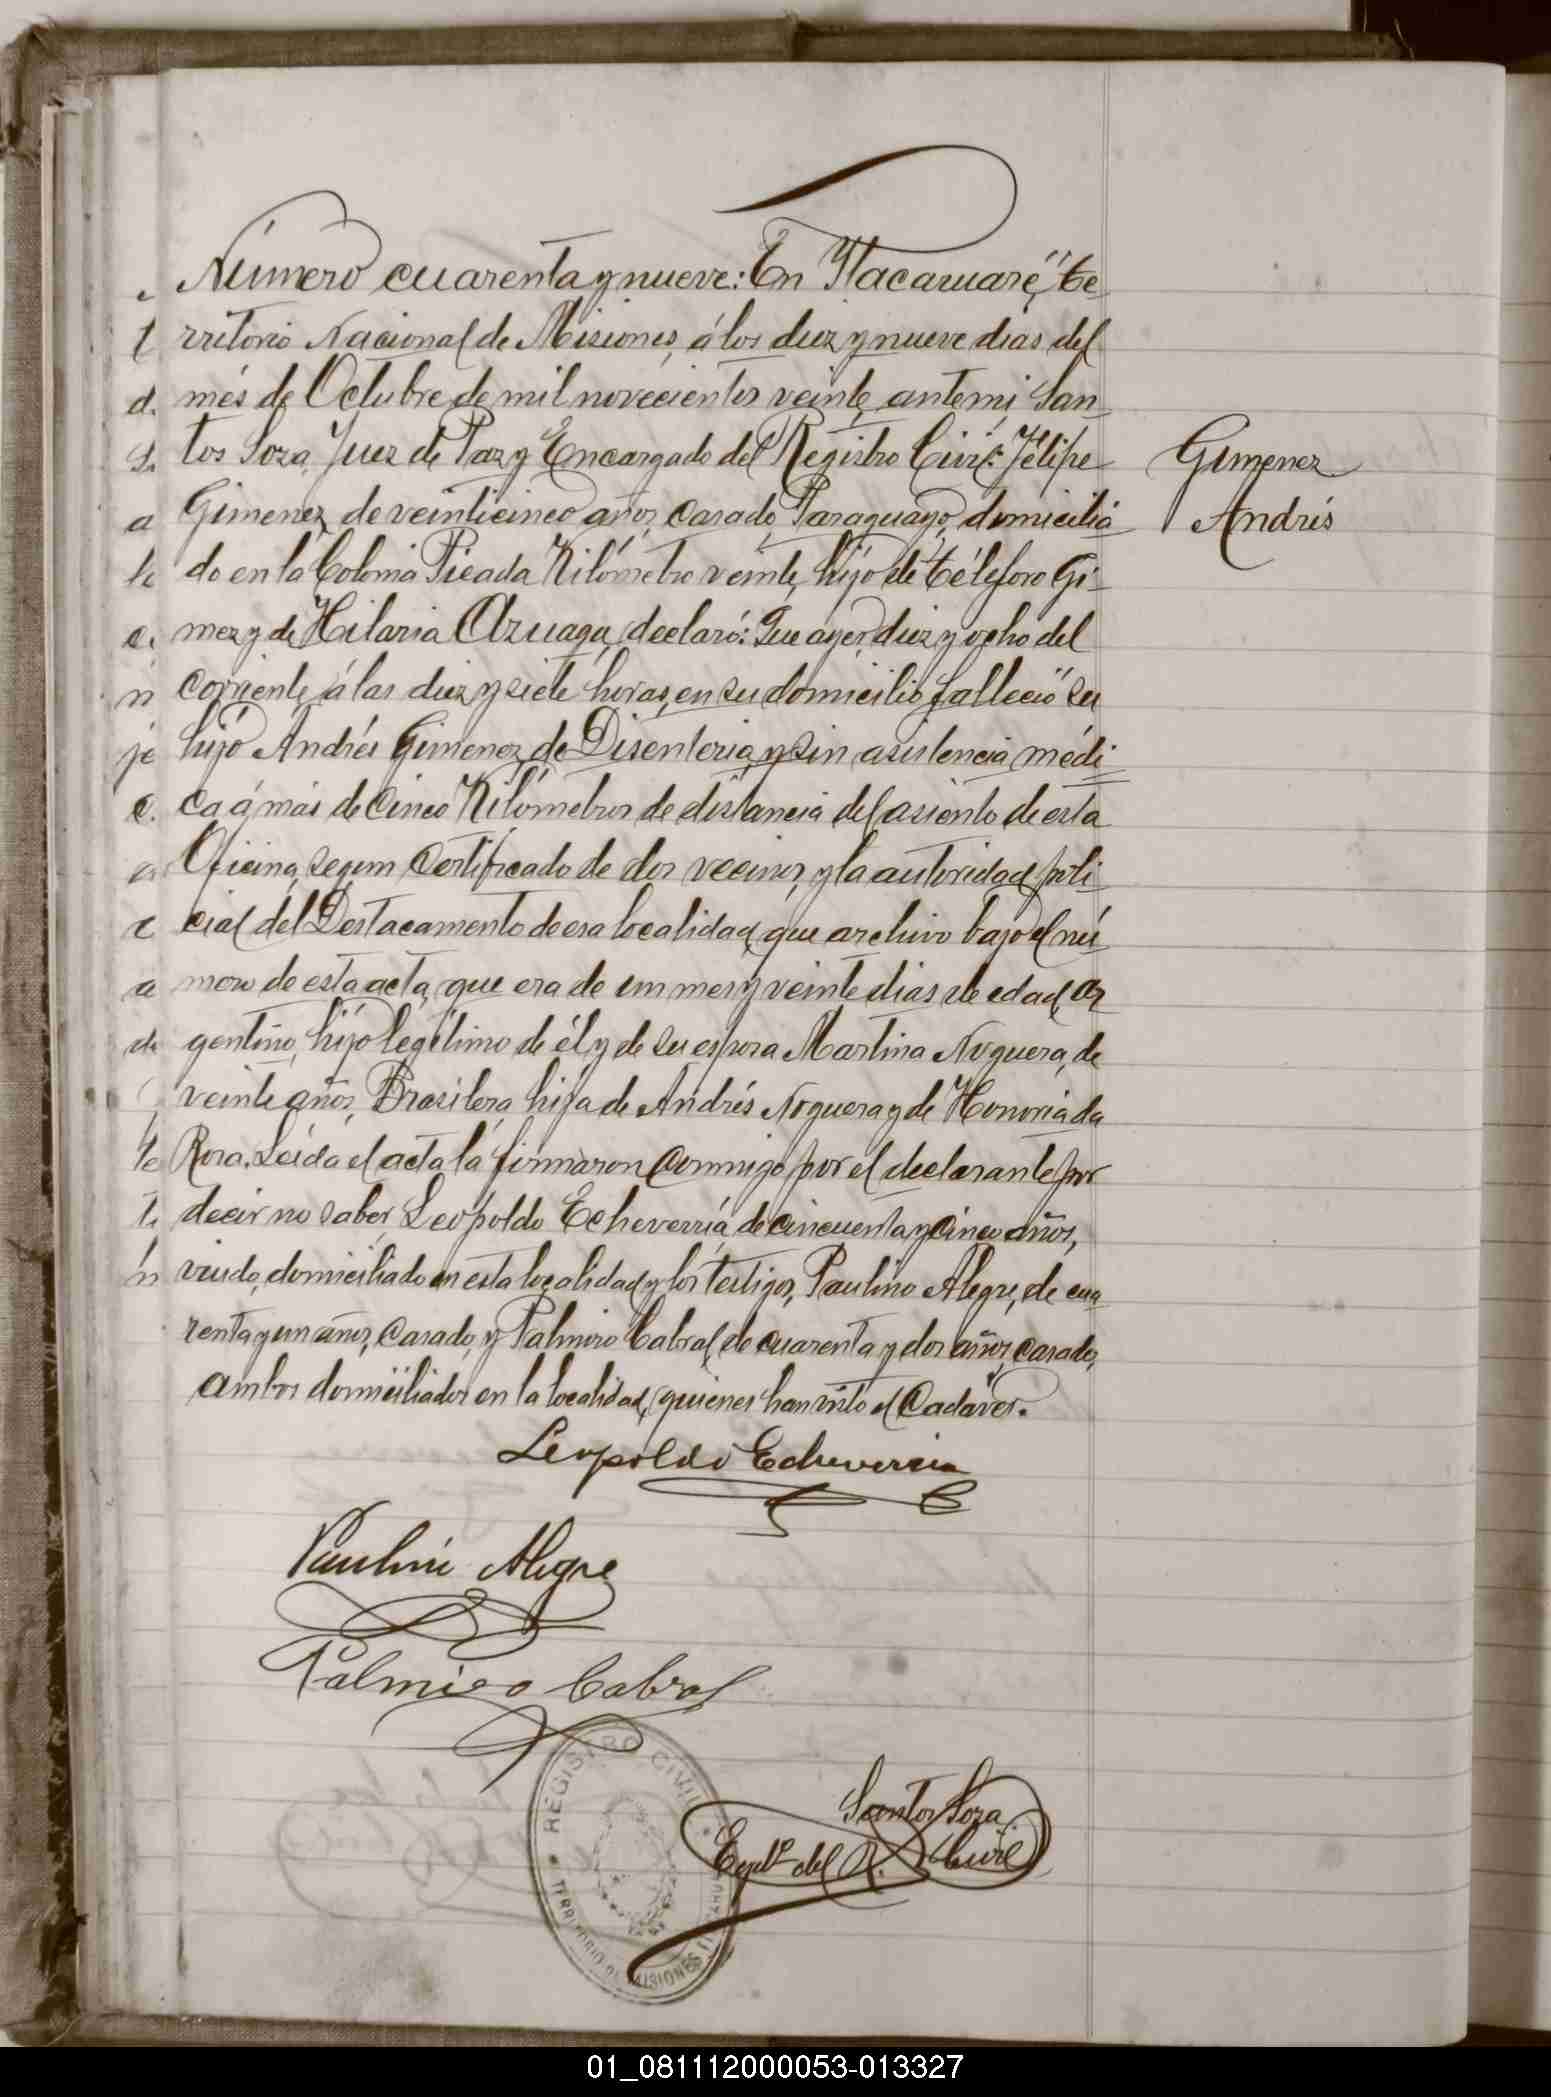 Número cuarenta y nueve: En Ytacaruaré, Te-
rritorio Nacional de Misiones, á los diez y nueve dias del
més de Octubre de mil novecientos veinte, ante mi, San-
tos Soza, Juez de Paz y Encargado del Registro Civil: Felipe
Gimenez
Gimenez, de veinticinco años, casado, Paraguayo, domicilia-
Andrés
do en la Colonia Picada Kilómetro veinte, hijo de Téleforo Gi-
mez y de Hilaria Azuaga, declaró: Que ayer, diez y ocho del
corriente, á las diez y siete horas, en su domicilio falleció su
hijo Andrés Gimenez, de Disenteria, y sin asistencia médi-
ca á más de cinco Kilómetros de distancia del asiento de esta
Oficina, segun certificado de dos vecinos, y la autoridad poli-
cial del Destacamento de esa localidad, que archivo bajo el nú-
mero de esta acta, que era de un mes y veinte dias de edad, ar-
gentino, hijo legítimo de él y de su esposa Martina Noguera, de
veinte años, Brasilera, hija de Andrés Noguera y de Honoria da
Rosa. Leída el acta la firmaron conmigo por el declarante por
decir no saber, Leopoldo Echeverría, de cincuenta y cinco años,
viudo, domiciliado en esta localidad y los testigos, Paulino Alegre, de cua-
renta y un años, casado, y Palmiro Cabral, de cuarenta y dos años, casado,
ambos domiciliados en la localidad, quienes han visto el cadáver.
Leopoldo Echeverria
Paulino Alegre
Palmiro Cabral
REGISTRO CIVIL
TERRITORIO DE MISIONES
Santos Soza
Engdo. del R. Civil
01_081112000053-013327